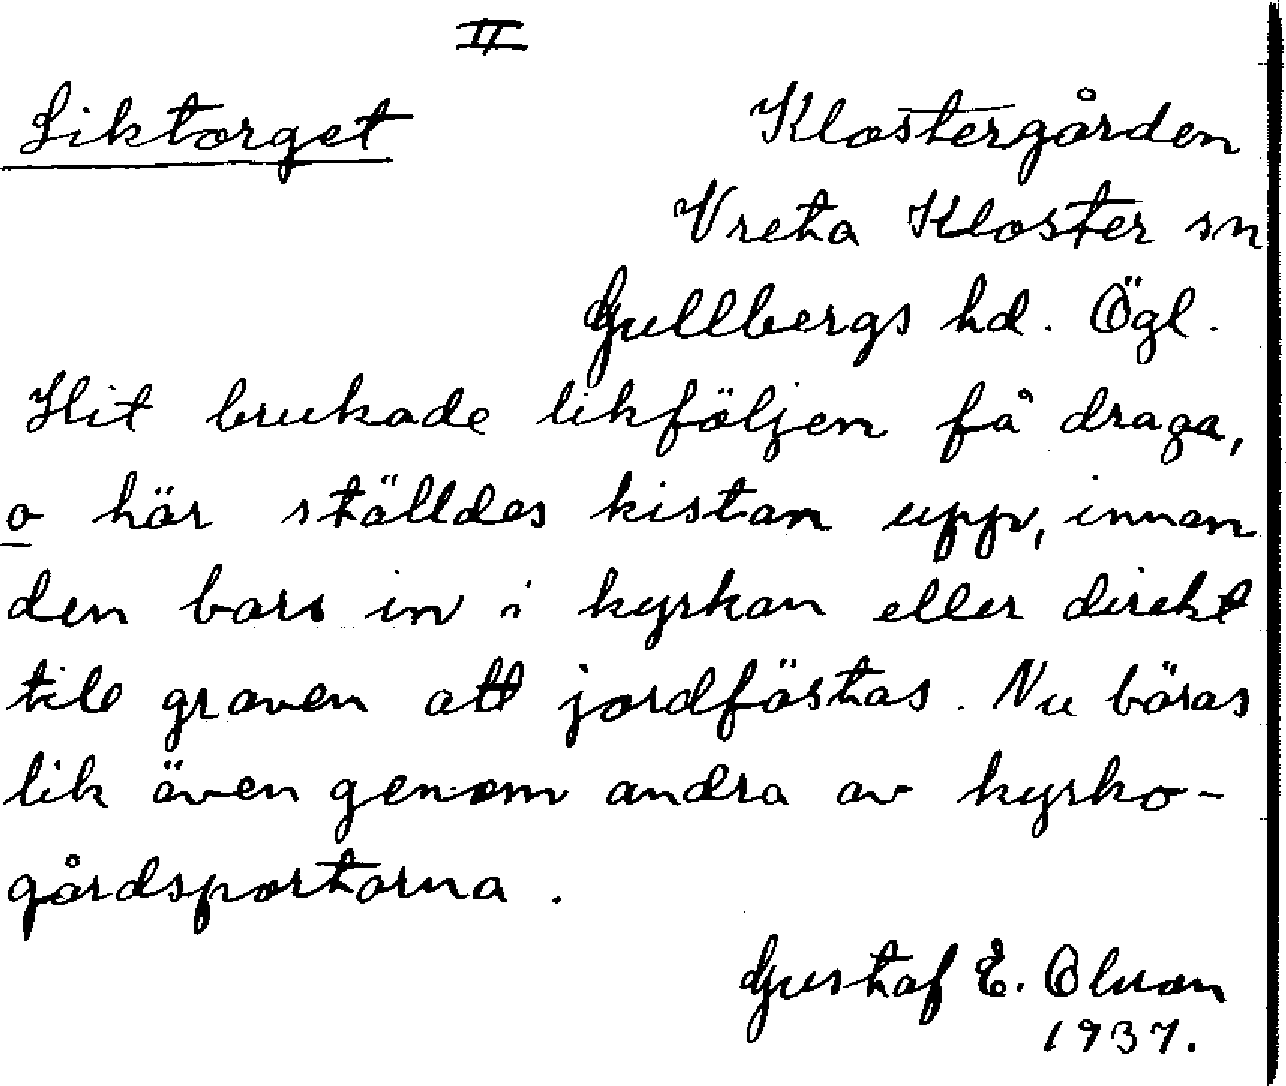 II
Liktorget Klostergården
Vreta Kloster sn
Gullbergs hd. Ögl.
Hit brukade likföljen få draga,
o här ställdes kistan upp, innan
den bars in i kyrkan eller direkt
till graven att jordfästas. Nu bäras
lik även genom andra av kyrko-
gårdsportarna.
Gustaf E. Olson
1937.